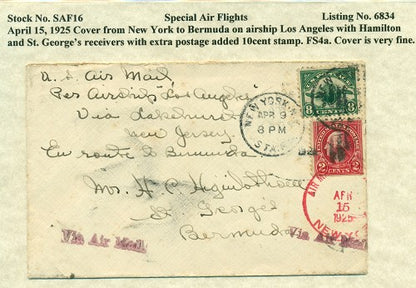 Stock No. SAF16 Special Air Flights Listing No. 6834
April 15, 1925 Cover from New York to Bermuda on airship Los Angeles with Hamilton
and St. George's receivers with extra postage added 10cent stamp. FS4a. Cover is very fine.
U.S. Air Mail
Per Airship "Los Angeles"
Via Lakehurst
New Jersey.
En route to Bermuda
Mrs. H. C.
St Georges
Bermuda
Via Air Mail
Via Air Mail
NEW YORK
APR 9
8 PM
STA.
8 CENTS 8
2 CENTS 2
AIR
APR
15
1925
NEW Y